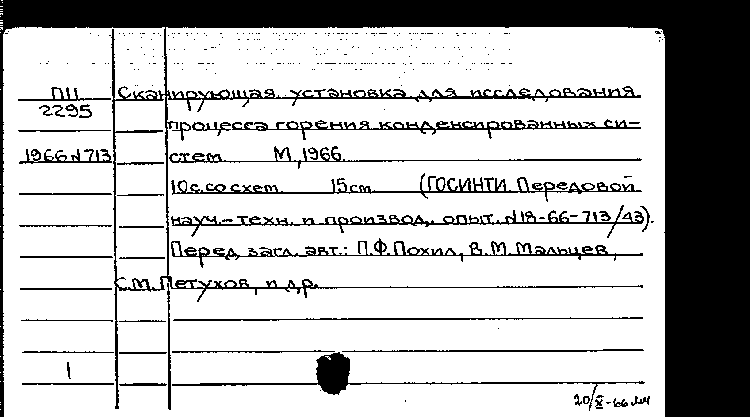 П11 Сканирующая установка для исследования
2295
процесса горения конденсированных си-
1966 N 713 стем. М, 1966.
10с. со схем. 15см. (ГОСИНТИ. Передовой
науч.-техн. и производ. опыт. N18-66-713/43).
Перед загл. авт.: П.Ф.Похил, В.М.Мальцев,
С.М.Петухов, и др.
1
20/X-66